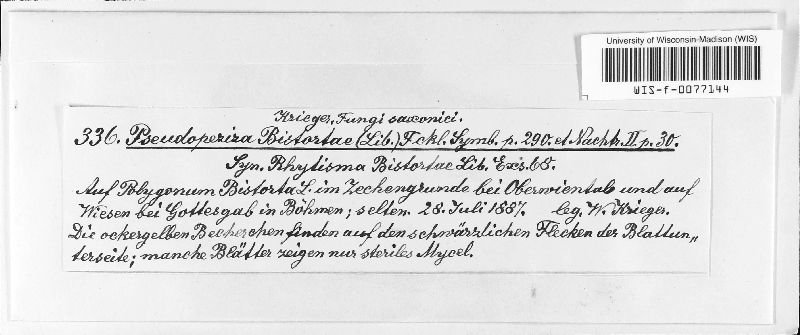 University of Wisconsin-Madison (WIS)
WIS-f-0077144
Krieger, Fungi saxonici.
336. Pseudopeziza Bistortae (Lib.) Fckl. Symb. p. 290. et Nachtr. II p. 30.
Syn. Rhytisma Bistortae Lib. Exs. 68.
Auf Polygonum Bistorta L. im Zechengrunde bei Oberwiental und auf
Wiesen bei Gottesgab in Böhmen; selten. 28. Juli 1887. leg. W. Krieger.
Die ockergelben Becherchen finden auf den schwärzlichen Flecken der Blattun„
terseite; manche Blätter zeigen nur steriles Mycel.